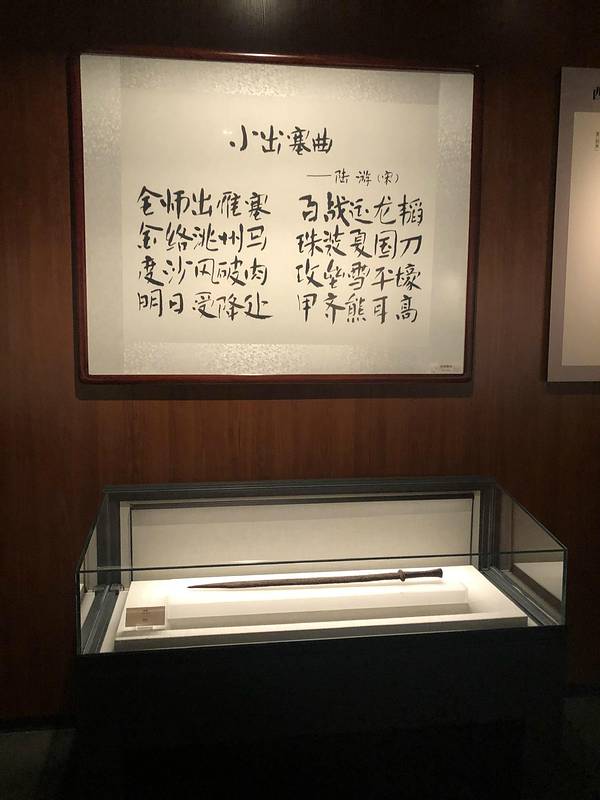 小出塞曲
——陆游(宋)
全师出雁塞 百战运龙韬
金络洮州马 珠装夏国刀
度沙风破肉 攻垒雪平壕
明日受降处 甲齐熊耳高